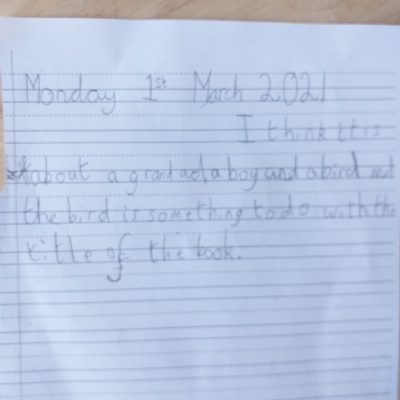 Monday 1st March 2021
I think it is
about a grandad a boy and a bird and
the bird is something to do with the
title of the book.